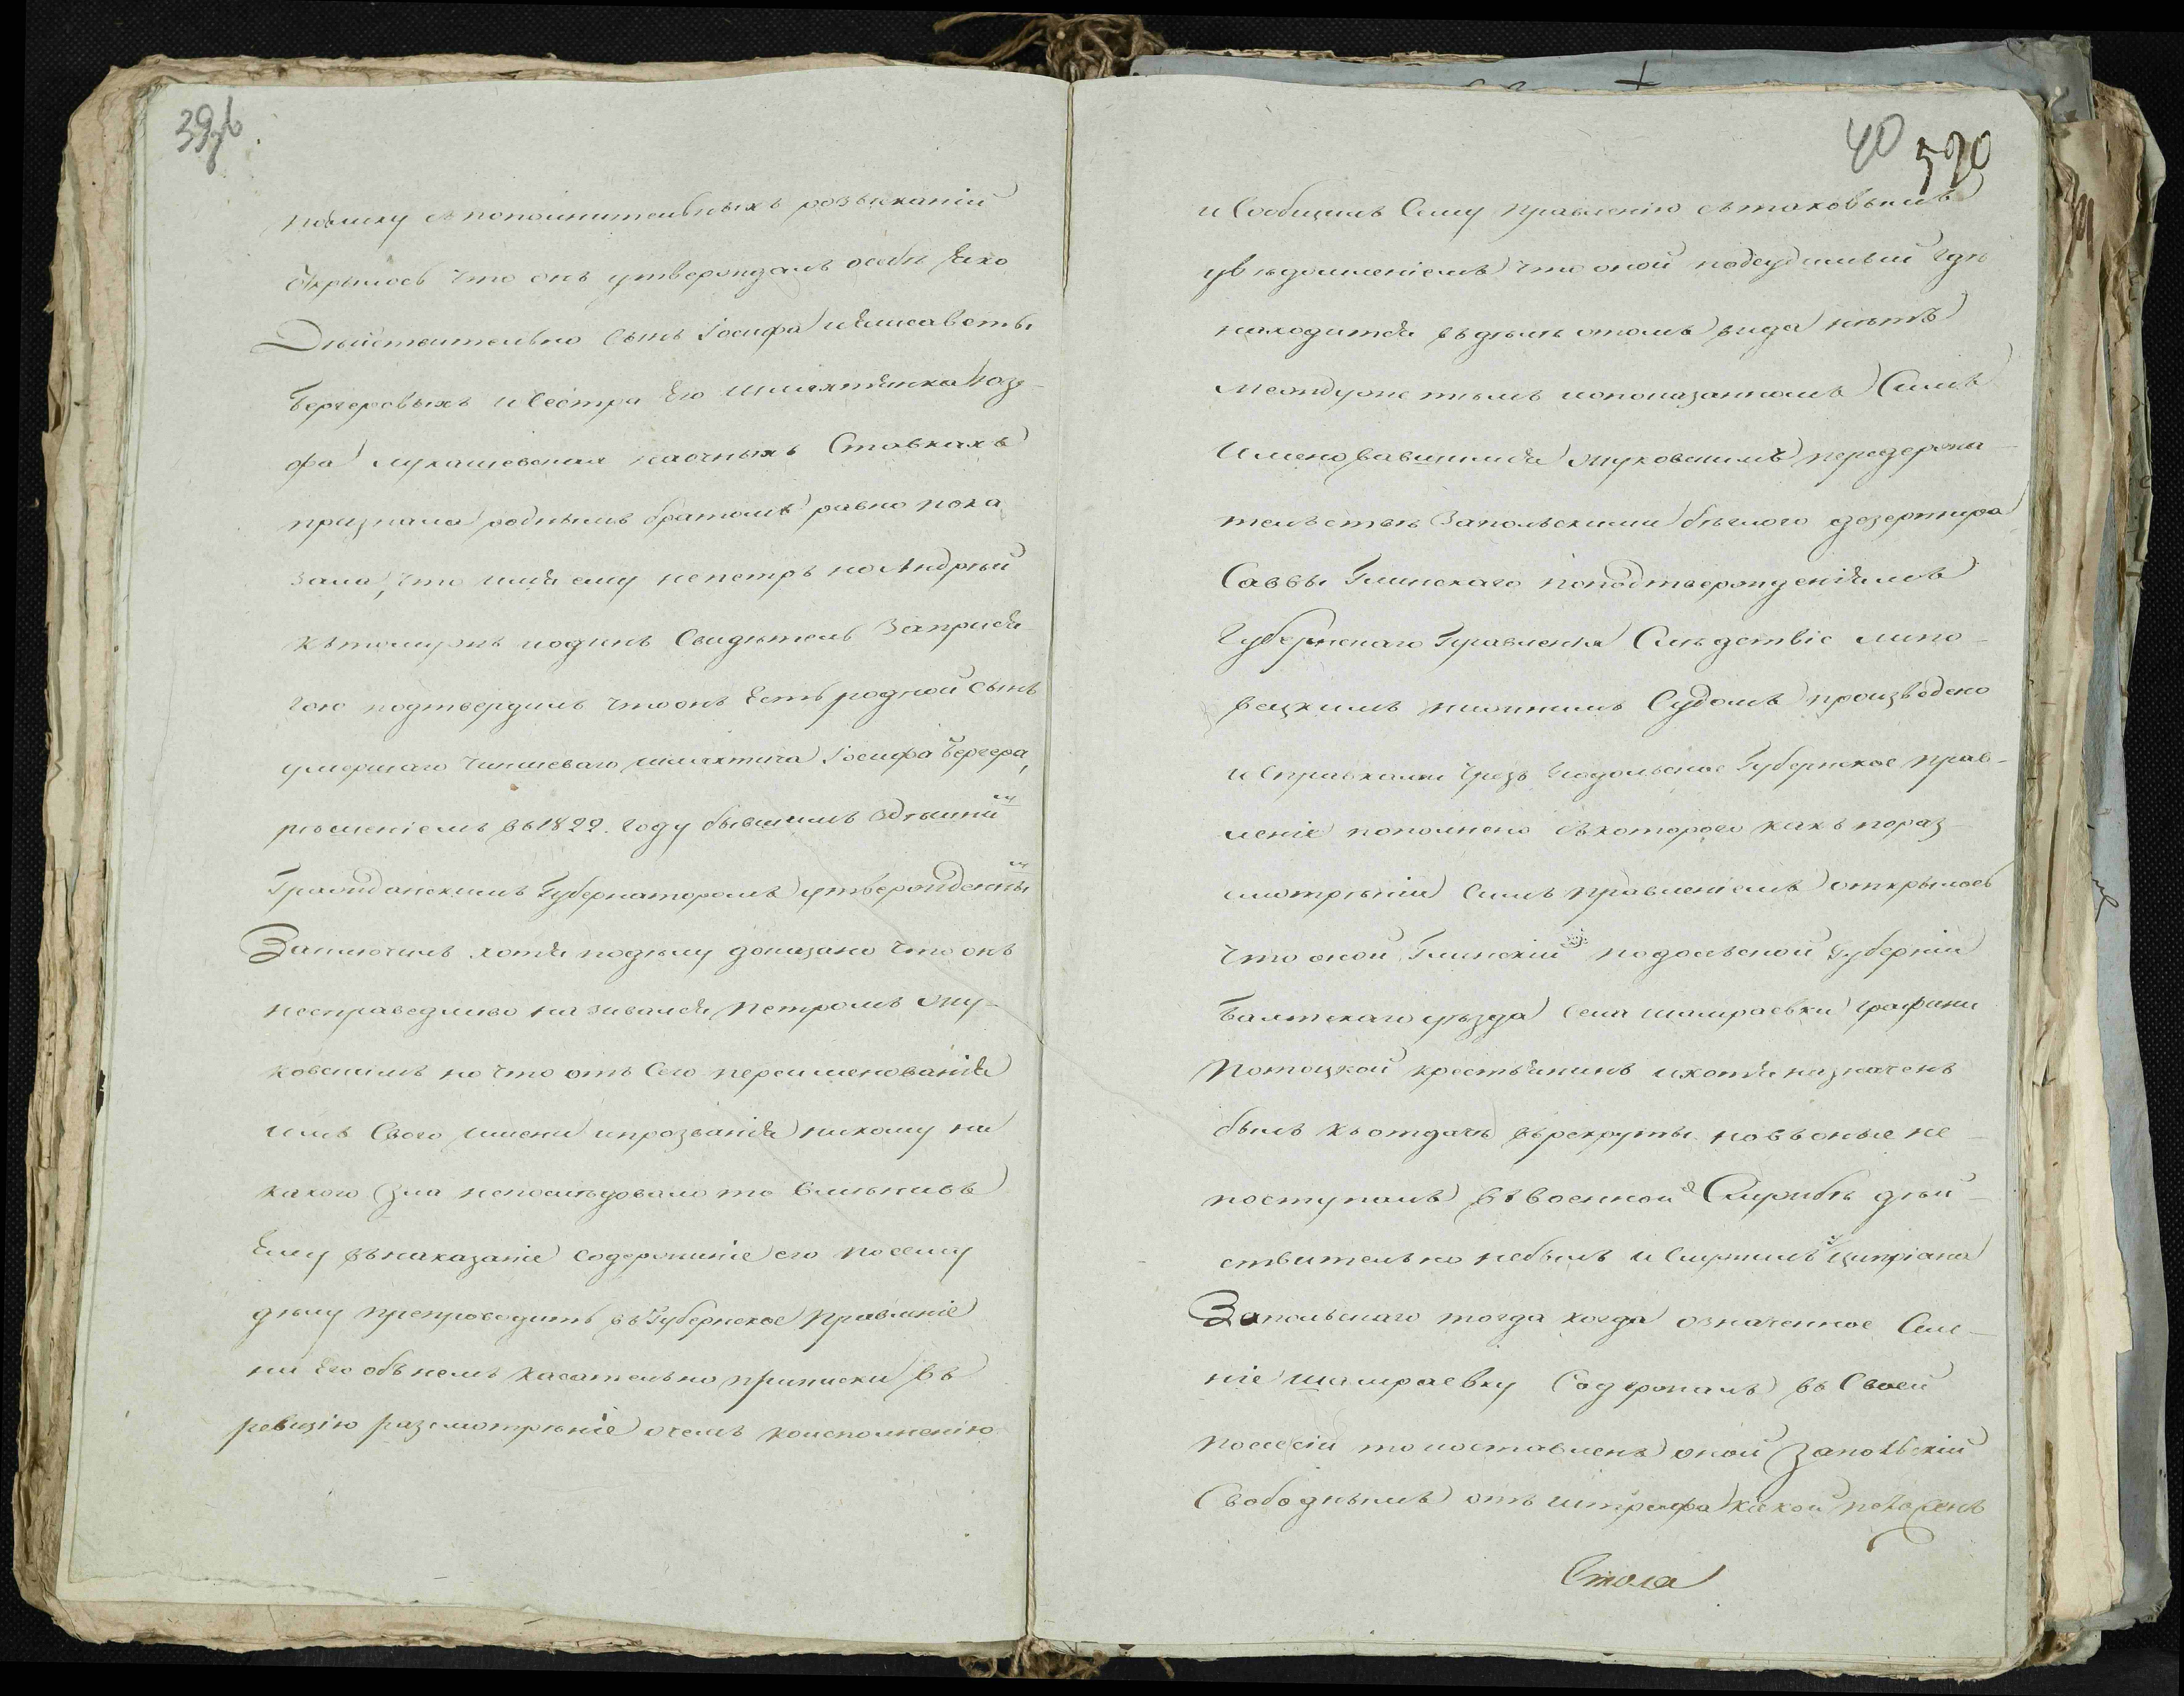 39об
поелику съ пополнительныхъ розысканій
открылось что онъ утверждалъ особѣ яко
Дѣйствительно сынъ Іосифа и Елисаветы
Бергеровыхъ и Сестра Его шляхтянка Іозе-
фа Лукашевская на очныхъ Ставкахъ
признала роднымъ братомъ равно пока
зала, что имя ему не петръ но Андрей
къ томужъ и одинъ Свидѣтель За прися
гою подтвердилъ что онъ Есть родной сынъ
умершаго чиншеваго шляхтича Іосифа Бергера,
рѣшеніемъ въ 1822. году бывшимъ здѣшнимъ
Гражданскимъ Губернаторомъ утвержденнымъ
Заключилъ хотя по дѣлу доказано что онъ
несправедливо назывался Петромъ Жу-
ковскимъ но что отъ Сего переименованія
имъ Своего имени и прозванія никому ни
какого зла непослѣдовало то вмѣнивъ
Ему въ наказаніе содержаніе его по сему
дѣлу препроводить въ Губернское Правленіе
для Его объ немъ касательно приписки въ
ревизію разсмотрѣніе о чемъ къ исполненію
40 590
и Сообщилъ Сему правленію съ таковымъ
увѣдомленіемъ что оной подсудимый гдѣ
находится въ дѣлѣ о томъ вида нѣтъ
Между же тѣмъ и о показанномъ Симъ
Именовавшимся Жуковскимъ передержа-
тельствѣ Запольскими бѣглого дезертира
Саввы Глинскаго по подтвержденіямъ
Губернскаго Правленія Слѣдствіе Липо-
вецкимъ нижнимъ Судомъ произведено
и Справками чрезъ Подольское Губернское прав-
леніе пополнено съ котораго какъ по раз-
смотрѣніи Симъ правленіемъ открылось
что оной Глинскій подольской Губерніи
Балтскаго уѣзда села Шамраевки графини
Потоцкой крестьянинъ и хотя назначенъ
былъ къ отдачѣ въ рекруты но въ оные не
поступалъ въ военной Службѣ дѣй-
ствительно небылъ и Служилъ у Ципріана
Запольскаго тогда когда означенное Селе-
ніе Шамраевку Содержалъ въ Своей
посессіи то и оставленъ оной Запольскій
Свободнымъ отъ штрафа какой положенъ
Стола